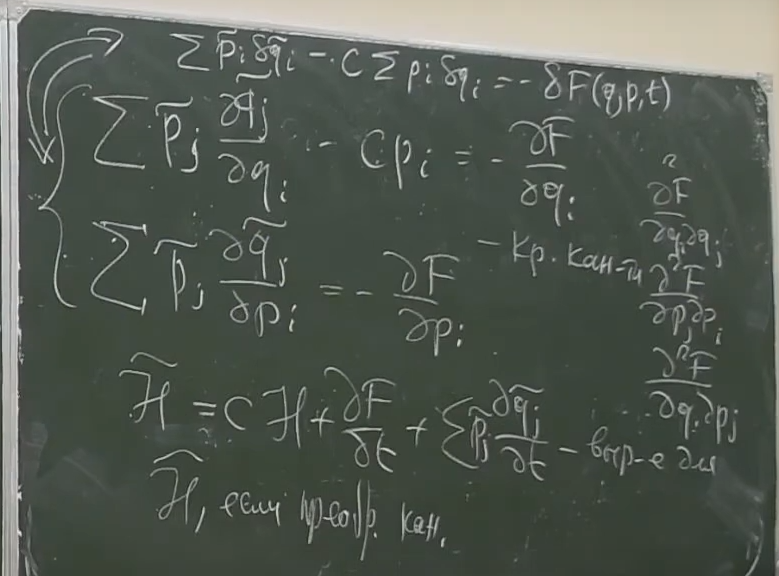 ∑ p̃ᵢ δq̃ᵢ − c ∑ pᵢ δqᵢ = − δF(q,p,t)
∑ p̃ⱼ ∂q̃ⱼ/∂qᵢ − cpᵢ = − ∂F/∂qᵢ
∑ p̃ⱼ ∂q̃ⱼ/∂pᵢ = − ∂F/∂pᵢ
− кр. кан-ти
∂²F/∂qᵢ∂qⱼ
∂²F/∂pⱼ∂pᵢ
∂²F/∂qᵢ∂pⱼ
H̃ = cH + ∂F/∂t + ∑ p̃ⱼ ∂q̃ⱼ/∂t − выр-е для
H̃, если преобр. кан.